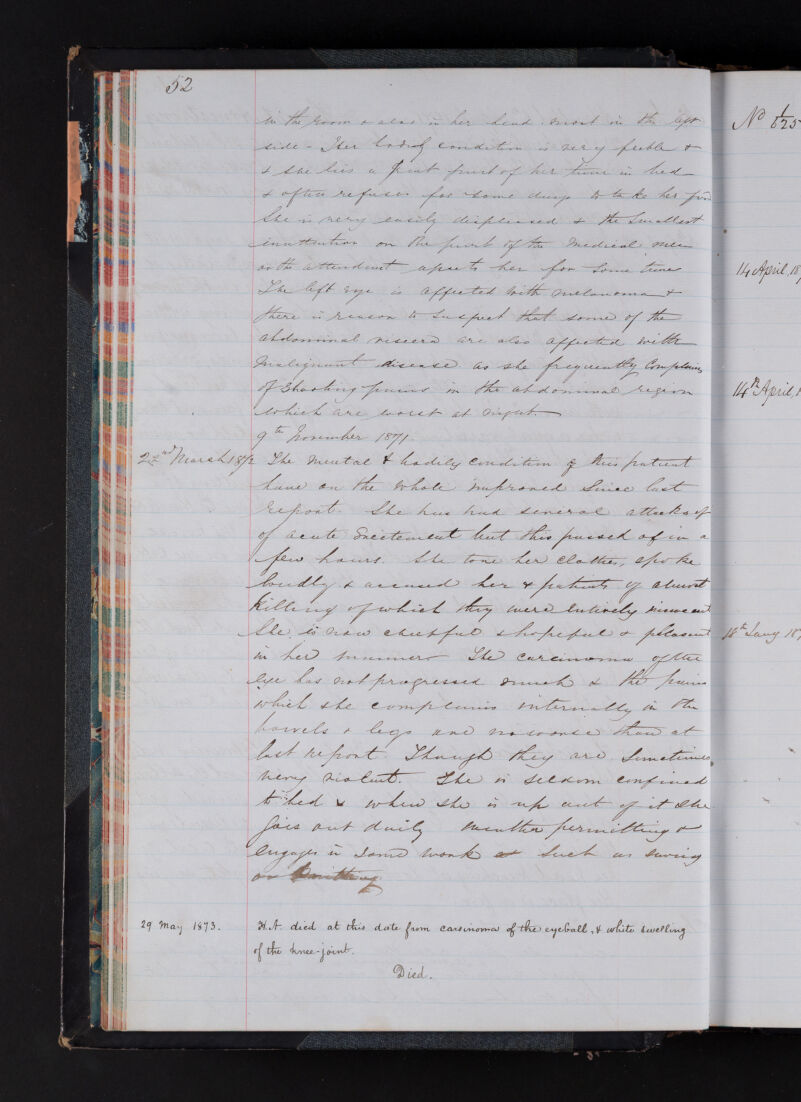 52
in the room & also in her head most in the left
side - Her bodily condition is very feeble &
& she lies a great part of her time in bed
& often refuses for some days to take her
She is very easily displeased & the smallest
inattention on the part of the medical men
or the attendant upsets her for some time
The left eye is affected with melanoma &
there is reason to suspect that some of the
abdominal viscera are also affected with
malignant disease as she frequently complains
of shooting pains in the abdominal region
which are worst at night.
9th November 1871.
22nd March 1872 The mental & bodily condition of this patient
have on the whole improved since last
report. She has had several attacks of
of acute excitement but this passed of in a
few hours. She tore her clothes, spoke
loudly & accused her & patients of almost
killing of which they were entirely innocent
She is now cheerful & hopeful & pleasant
in her manner The carcinoma of the
eye has not progressed much & the pains
which she complains internally in the
bowels & legs are no worse than at
last report Though they are sometimes
very violent. She is seldom confined
to bed & when she is up out of it she
goes out daily weather permitting &
engages in some work at such as sewing
or knitting
29 May 1873. H.A. died at this date from carcinoma of the eyeball, & white swelling
of the knee-joint.
Died.
No 1/825
14 April, 18
14th April, 1
18th Jany 18